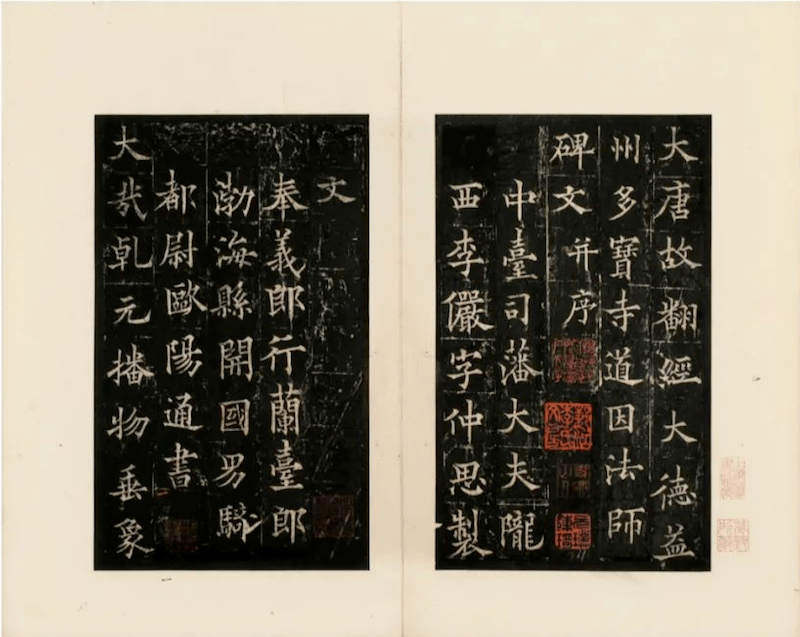 大唐故翻經大德益
州多寶寺道因法師
碑文并序
中臺司藩大夫隴
西李儼字仲思製
文
奉義郎行蘭臺郎
渤海縣開國男騎
都尉歐陽通書
大哉乹元播物垂象